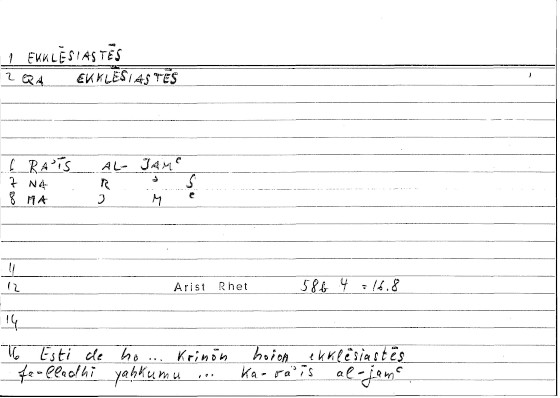 1 EKKLĒSIASTĒS
2 QA EKKLĒSIASTĒS 1
6 RAʾĪS AL- JAMᶜ
7 NA R ʾ S
8 MA J M ᶜ
11
12 Arist Rhet 58b 4 = 16.8
14
16 Esti de ho ... Krinōn hoion ekklēsiastēs
fa-lladhī yaḥkumu ... Ka-raʾīs al-jamᶜ